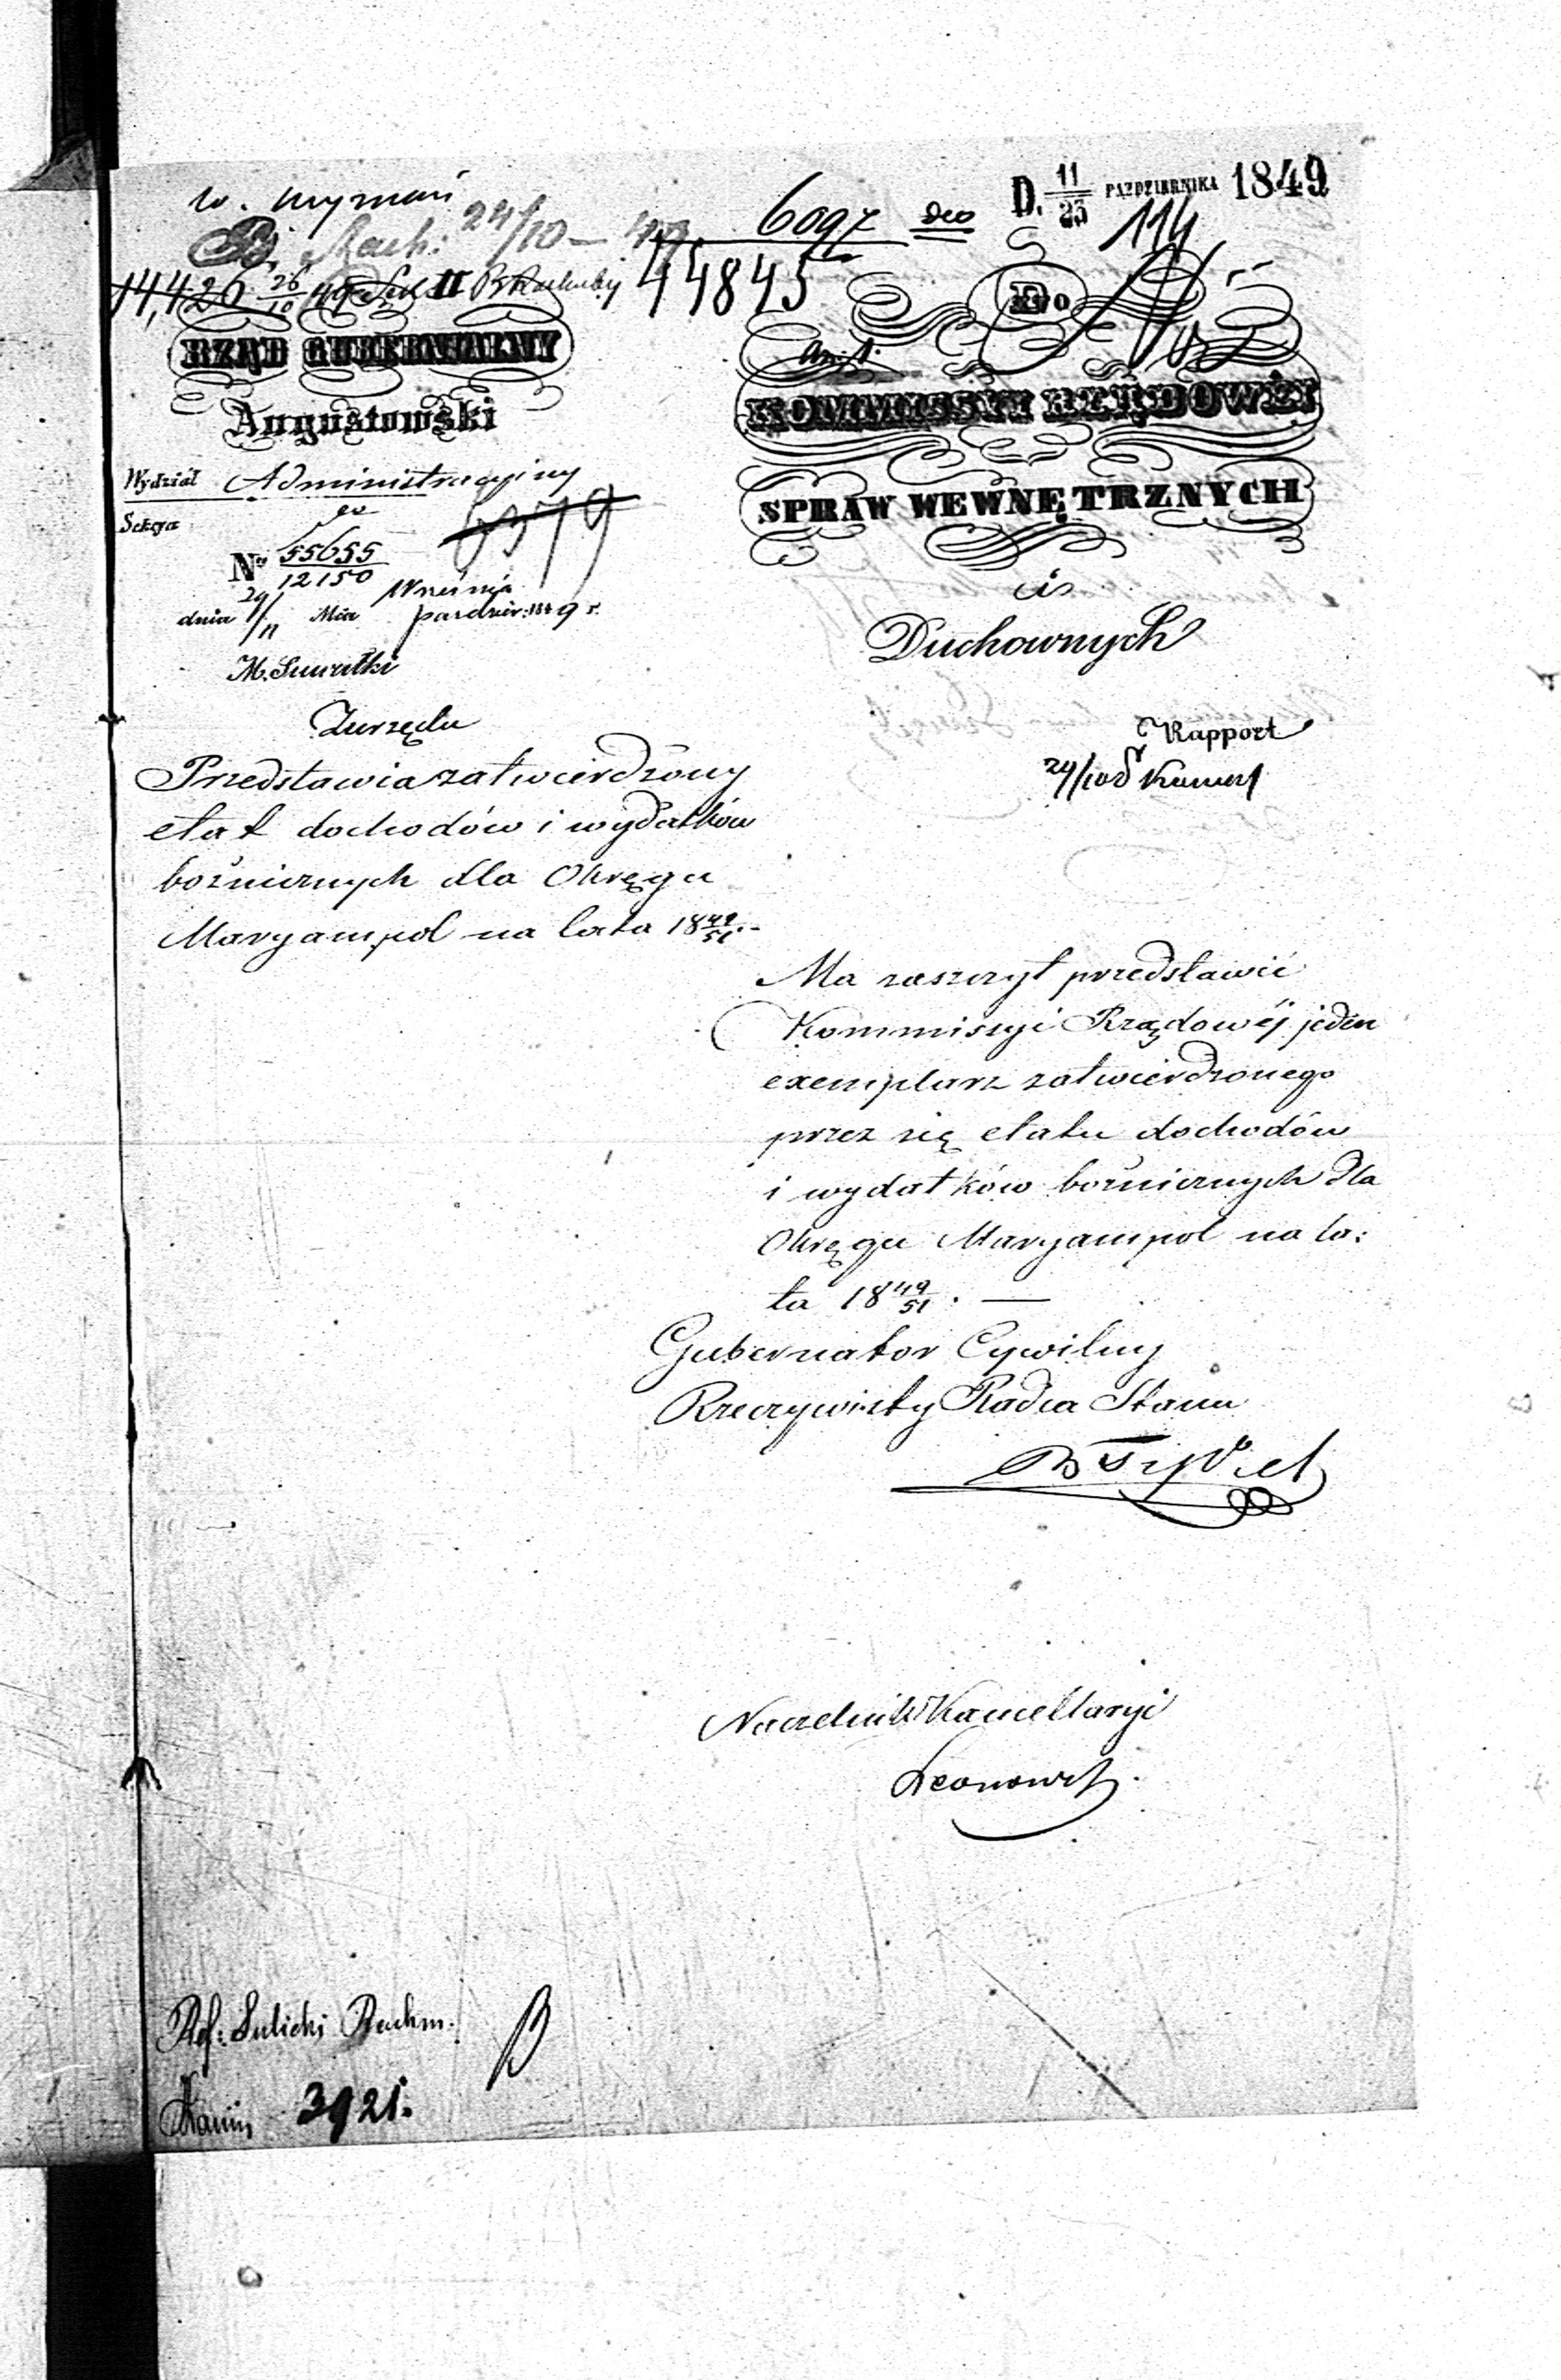 D. 11/23 PAZDZIERNIKA 1849
114
6097
44845
14,426 26/10 49 II
RZĄD GUBERNIALNY
Augustowski
Wydział Administracyiny
Sekcya
6379
Nº 55655/12150
dnia 29/11 Mca Września/paździer: 1849 r.
M. Suwałki
Do
KOMMISSYI RZĄDOWÉY
SPRAW WEWNĘTRZNYCH
i
Duchownych
Zurzędu
Przedstawia zatwierdzony
etat dochodów i wydatków
bożnicznych dla Okręgu
Maryampol na lata 1849/51.-
Rapport
24/10
Ma zaszczyt przedstawić
Kommissyi Rządowéj jeden
exemplarz zatwierdzonego
przez się etatu dochodów
i wydatków bożnicznych dla
Okręgu Maryampol na la:
ta 1849/51. —
Gubernator Cywilny
Rzeczywisty Radca Stanu
Naczelnik Kancellaryi
Ref: Sulicki Rachm.
3921.